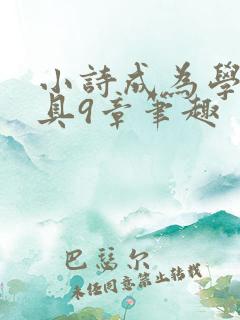 小詩成為學
具9章筆趣
巴瑟尔
未经同意禁止转载